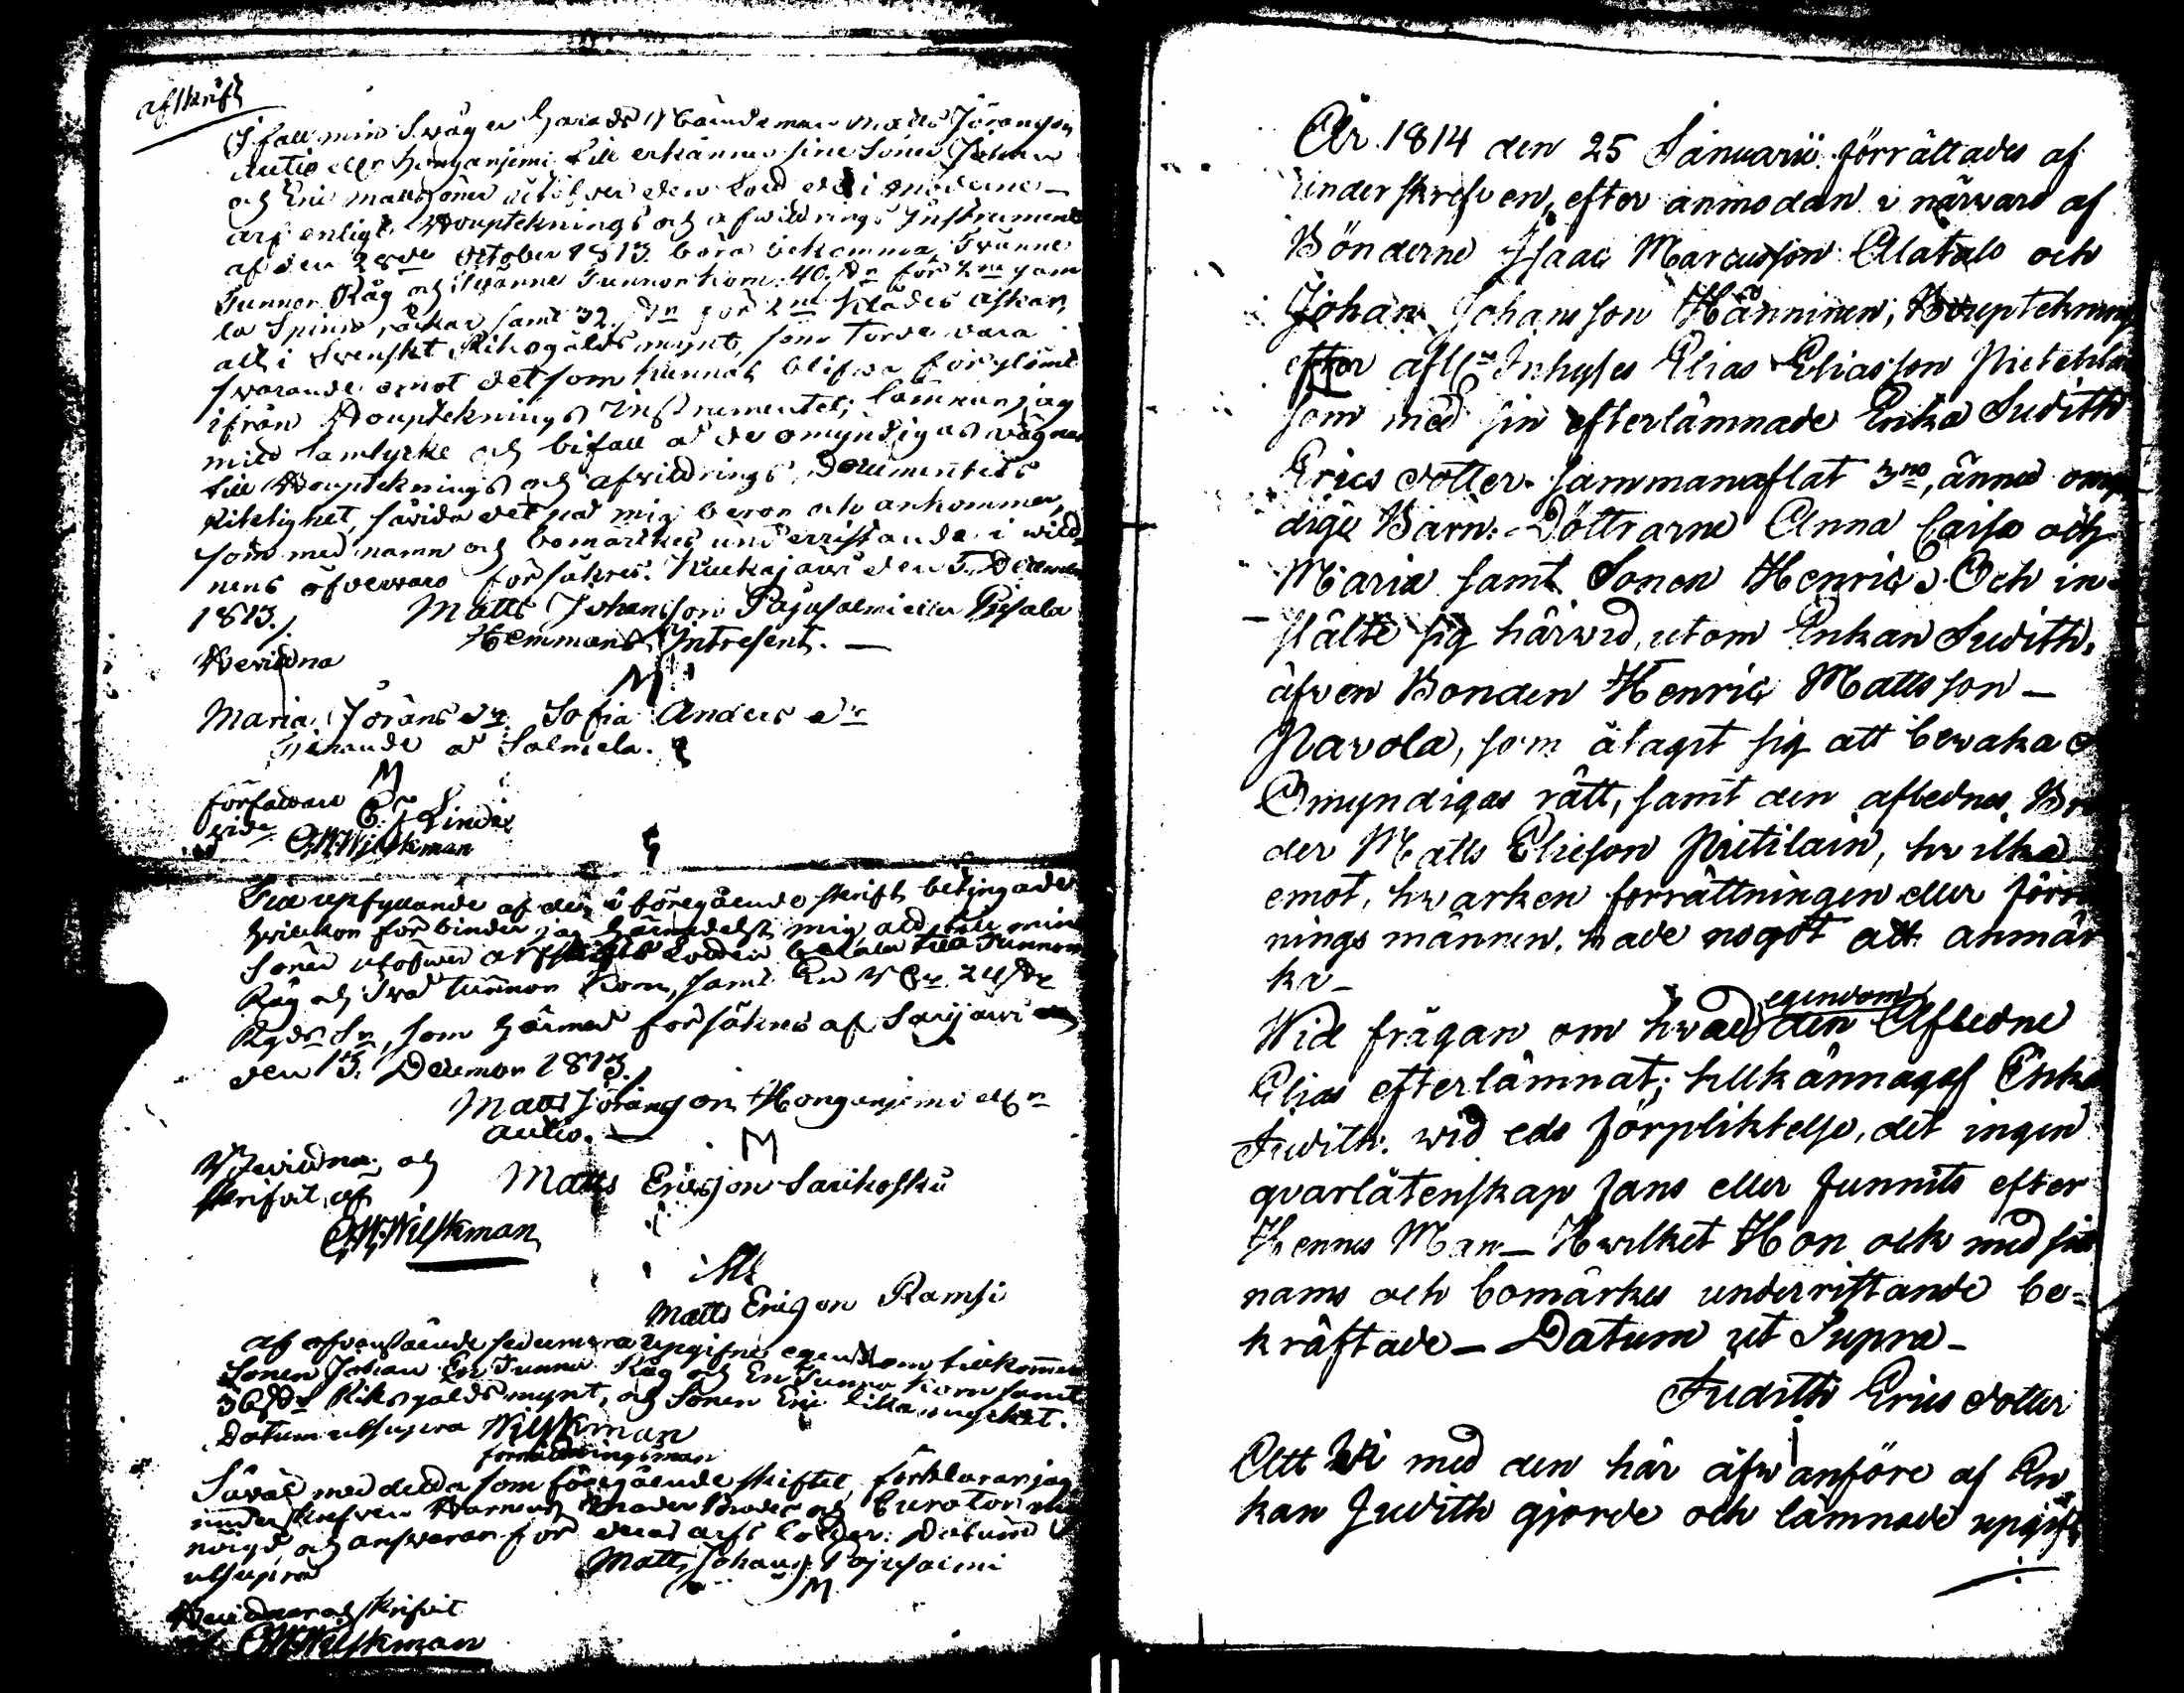 afskrift
I fall min Swåger Härads Nämndeman Matts Jöransson
Autio eller Honganjemi till erkänner sine Söner Johan
och Eric Matts söner utöfver den lod de i Moderne
arf enligt Bouptteknings och afwittrings Instrument
af den 28de October 1813 böra bekomma, Tvänne
Tunnor Råg och Tvänne Tunnor Korn, 40 för 2ne gam
la Spinn råckar samt 32 för 2ne Klädes
allt i Svenskt Riksgälds mynt, som torde vara
svarande emot det som kunnat blifva förglömt
ifrån Bouptteknings Instrumentet; Lämnar jag
mitt Samtycke och bifall å de omyndigas vägnar
till Bouptteknings och afwittrings Documentets
Riktighet, såvida det på mig beror och ankommer,
som med namn och bomärkes underristande i witt
nens öfvervaro försäkras. den 5 December
1813. Matts Johansson Pajusalmi eller
Hemmans Intressent. —
Bevittna M
Maria Jörans dr Sofia Anders dr
tjenande å Salmela.
M
författare E. J. Linde
vide C.W. Wilskman
Till upfyllande af det i föregående skrift betingade
hvilckor förbinder jag härmedelst mig att till mine
Söner utöfwer arfskifts Lodden betala två Tunnor
Råg och två tunnor Korn, samt En 24
som härmed försäkras af Sarijärvi
den 13 Decemer 1813.
Matts Jöransson Honganjemi ellr
Autio. —
M
Bevittna, och Matts Ericsson Sarikoski
skrifvit, af
C.W. Wilskman
Matts Ericson Ramsi
af ofvanstående sednmera upgifne egendom tillkommer
Sonen Johan En Tunna Råg och En Tunna Korn samt
36 Riksgälds mynt, och Sonen Eric lika mycket.
Datum utsupra Wilskman
förrättningsman
Såväl med detta som föregående skiftet, förklarar jag
underskrefven Barnens Moder Broder och Curator mig
nöigd, och answarar för deras arfs lodder: Datum
utsupra Matts Johans Pajusalmi
M
Bevittnar och skrifvit
af C.W. Wilskman
År 1814 den 25 Januarii förrättades af
underskrefven, efter anmodan i närwaro af
Bönderne Isaac Marcusson Alatalo och
Johan Johansson Hänninen; Bouptekning
efter afl. Inhyses Elias Eliasson
som med sin efterlämnade Enka Judith
Erics dotter sammanaflat 3ne, ännu omyn
dige Barn: Döttrarne Anna Caisa och
Maria samt Sonen Henric. Och in-
stälte sig härwid, utom Enkan Judith,
äfven Bonden Henric Mattsson —
Navola, som åtagit sig att bewaka
Omyndigas rätt, samt den aflednes Bro
der Matts Elieson Pietilain, hvilka
emot, hwarken förrättningen eller förrätt
nings männen, hade nogot att anmär
ka —
Wid frågan om hwad egendom den Afledne
Elias efterlämnat; tillkännagaf Enkan
Judith: wid eds förpliktelse, det ingen
qvarlåtenskap fans eller funnits efter
Hennes Man — Hwilket Hon ock med sitt
namns och bomärkes underristande be-
kräftade — Datum ut Supra —
Judith Erics dotter
Att Wi med den här äfwanföre af En
kan Judith gjorde och lämnade upgift